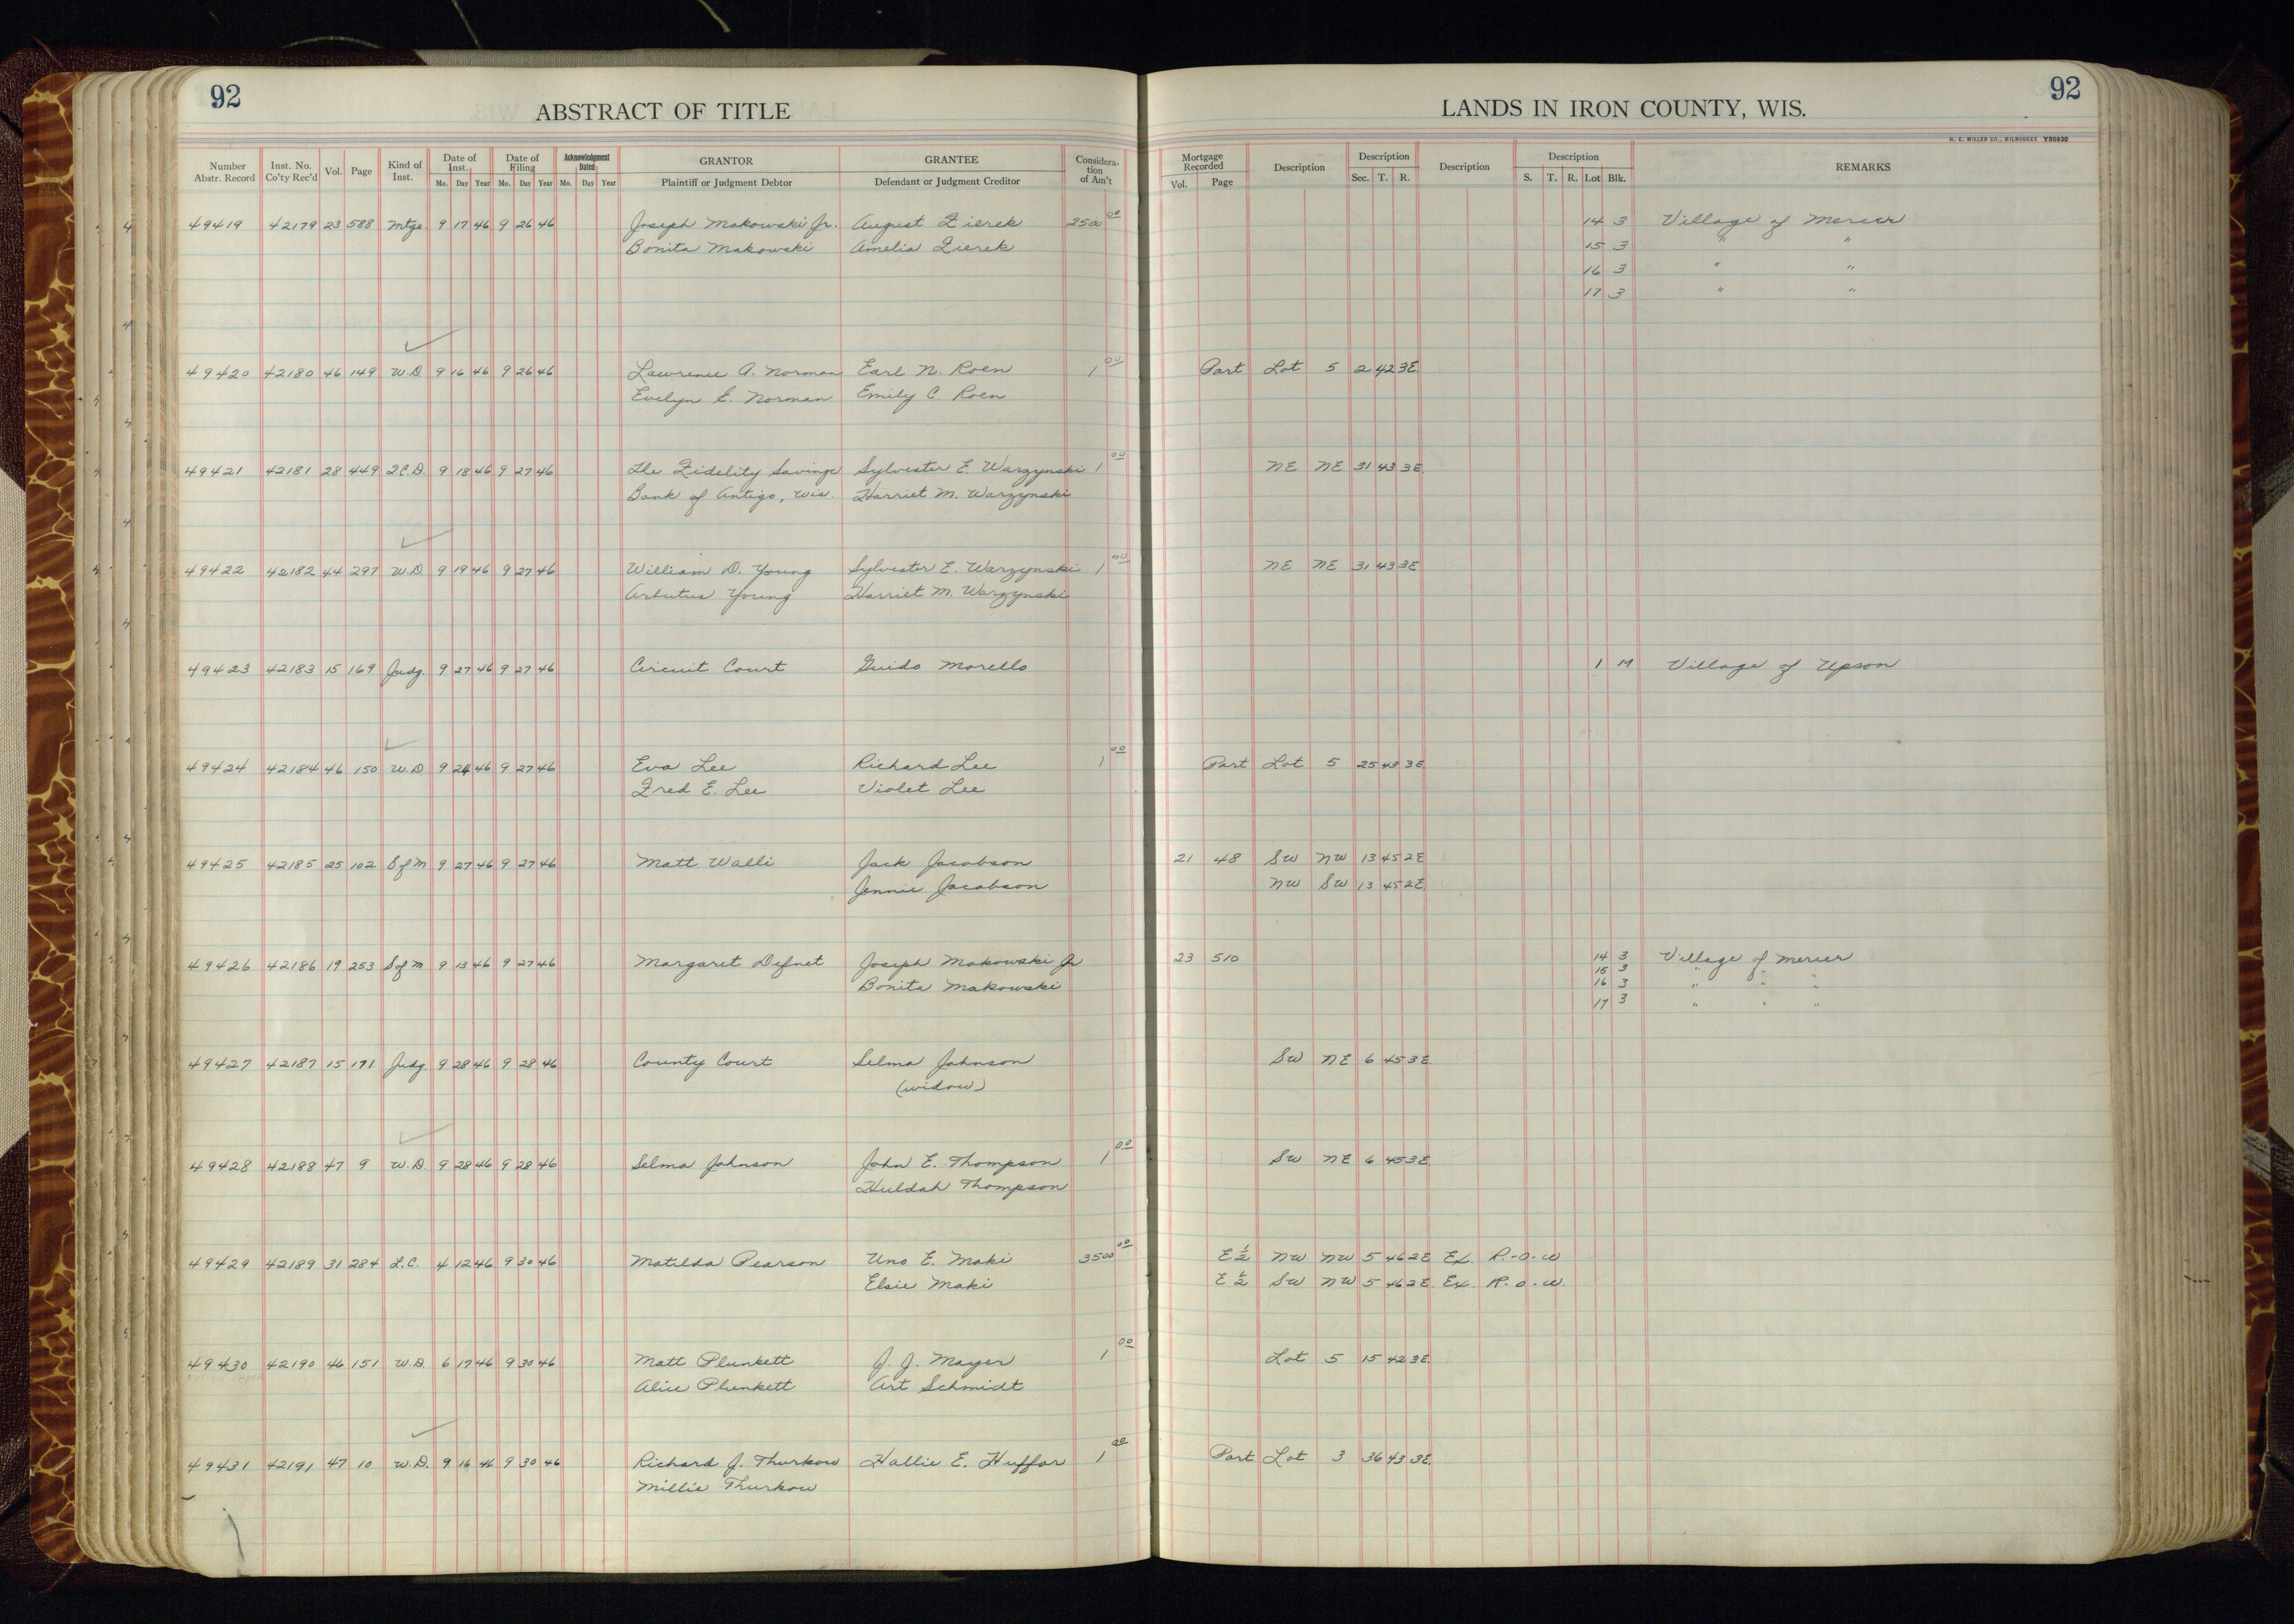 92
92
ABSTRACT OF TITLE
LANDS IN IRON COUNTY, WIS.
H. C. MILLER CO., MILWAUKEE Y50930
Number Abstr. Record | Inst. No. Co'ty Rec'd | Vol. | Page | Kind of Inst. | Date of Inst. Mo. Day Year | Date of Filing Mo. Day Year | Acknowledgment Dated Mo. Day Year | GRANTOR Plaintiff or Judgment Debtor | GRANTEE Defendant or Judgment Creditor | Consideration of Am't | Mortgage Recorded Vol. Page | Description | Description Sec. T. R. | Description | Description S. T. R. Lot Blk. | REMARKS
49419 42179 23 588 Mtge. 9 17 46 9 26 46 Joseph Makowski Jr. August Zierek 250 00 14 3 Village of Mercer
Bonita Makowski Amelia Zierek 15 3 " "
16 3 " "
17 3 " "
49420 42180 46 149 W.D 9 16 46 9 26 46 Lawrence A. Norman Earl N. Roen 1 00 Part Lot 5 2 42 3E.
Evelyn E. Norman Emily C Roen
49421 42181 28 449 2C.D. 9 18 46 9 27 46 The Fidelity Savings Sylvester E. Warzynski 1 00 NE NE 31 43 3E.
Bank of Antigo, Wis. Harriet M. Warzynski
49422 42182 44 297 W.D. 9 19 46 9 27 46 William D. Young Sylvester E. Warzynski 1 00 NE NE 31 43 3E
Arbutus Young Harriet M. Warzynski
49423 42183 15 169 Judg. 9 27 46 9 27 46 Circuit Court Guido Morello 1 M Village of Upson
49424 42184 46 150 W.D 9 24 46 9 27 46 Eva Lee Richard Lee 1 00 Part Lot 5 25 43 3E.
Fred E. Lee Violet Lee
49425 42185 25 102 S of M 9 27 46 9 27 46 Matt Walli Jack Jacobson 21 48 SW NW 13 45 2E
Jennie Jacobson NW SW 13 45 2E
49426 42186 19 253 S of M 9 13 46 9 27 46 Margaret Defnet Joseph Makowski Jr 23 510 14 3 Village of Mercer
Bonita Makowski 15 3 " " "
16 3 " " "
17 3 " " "
49427 42187 15 171 Judg. 9 28 46 9 28 46 County Court Selma Johnson SW NE 6 45 3E.
(widow)
49428 42188 47 9 W.D. 9 28 46 9 28 46 Selma Johnson John E. Thompson 1 00 SW NE 6 45 3E.
Huldah Thompson
49429 42189 31 284 L.C. 4 12 46 9 30 46 Matilda Pearson Uno E. Maki 3500 00 E½ NW NW 5 46 2E Ex. R.-O.-W
Elsie Maki E½ SW NW 5 46 2E. Ex. R.-O.-W.
49430 42190 46 151 W.D. 6 17 46 9 30 46 Matt Plunkett J. J. Mayer 1 00 Lot 5 15 42 3E.
Alice Plunkett Art Schmidt
49431 42191 47 10 W.D. 9 16 46 9 30 46 Richard J. Thurkow Hallie E. Huffar 1 00 Part Lot 3 36 43 3E.
Millie Thurkow